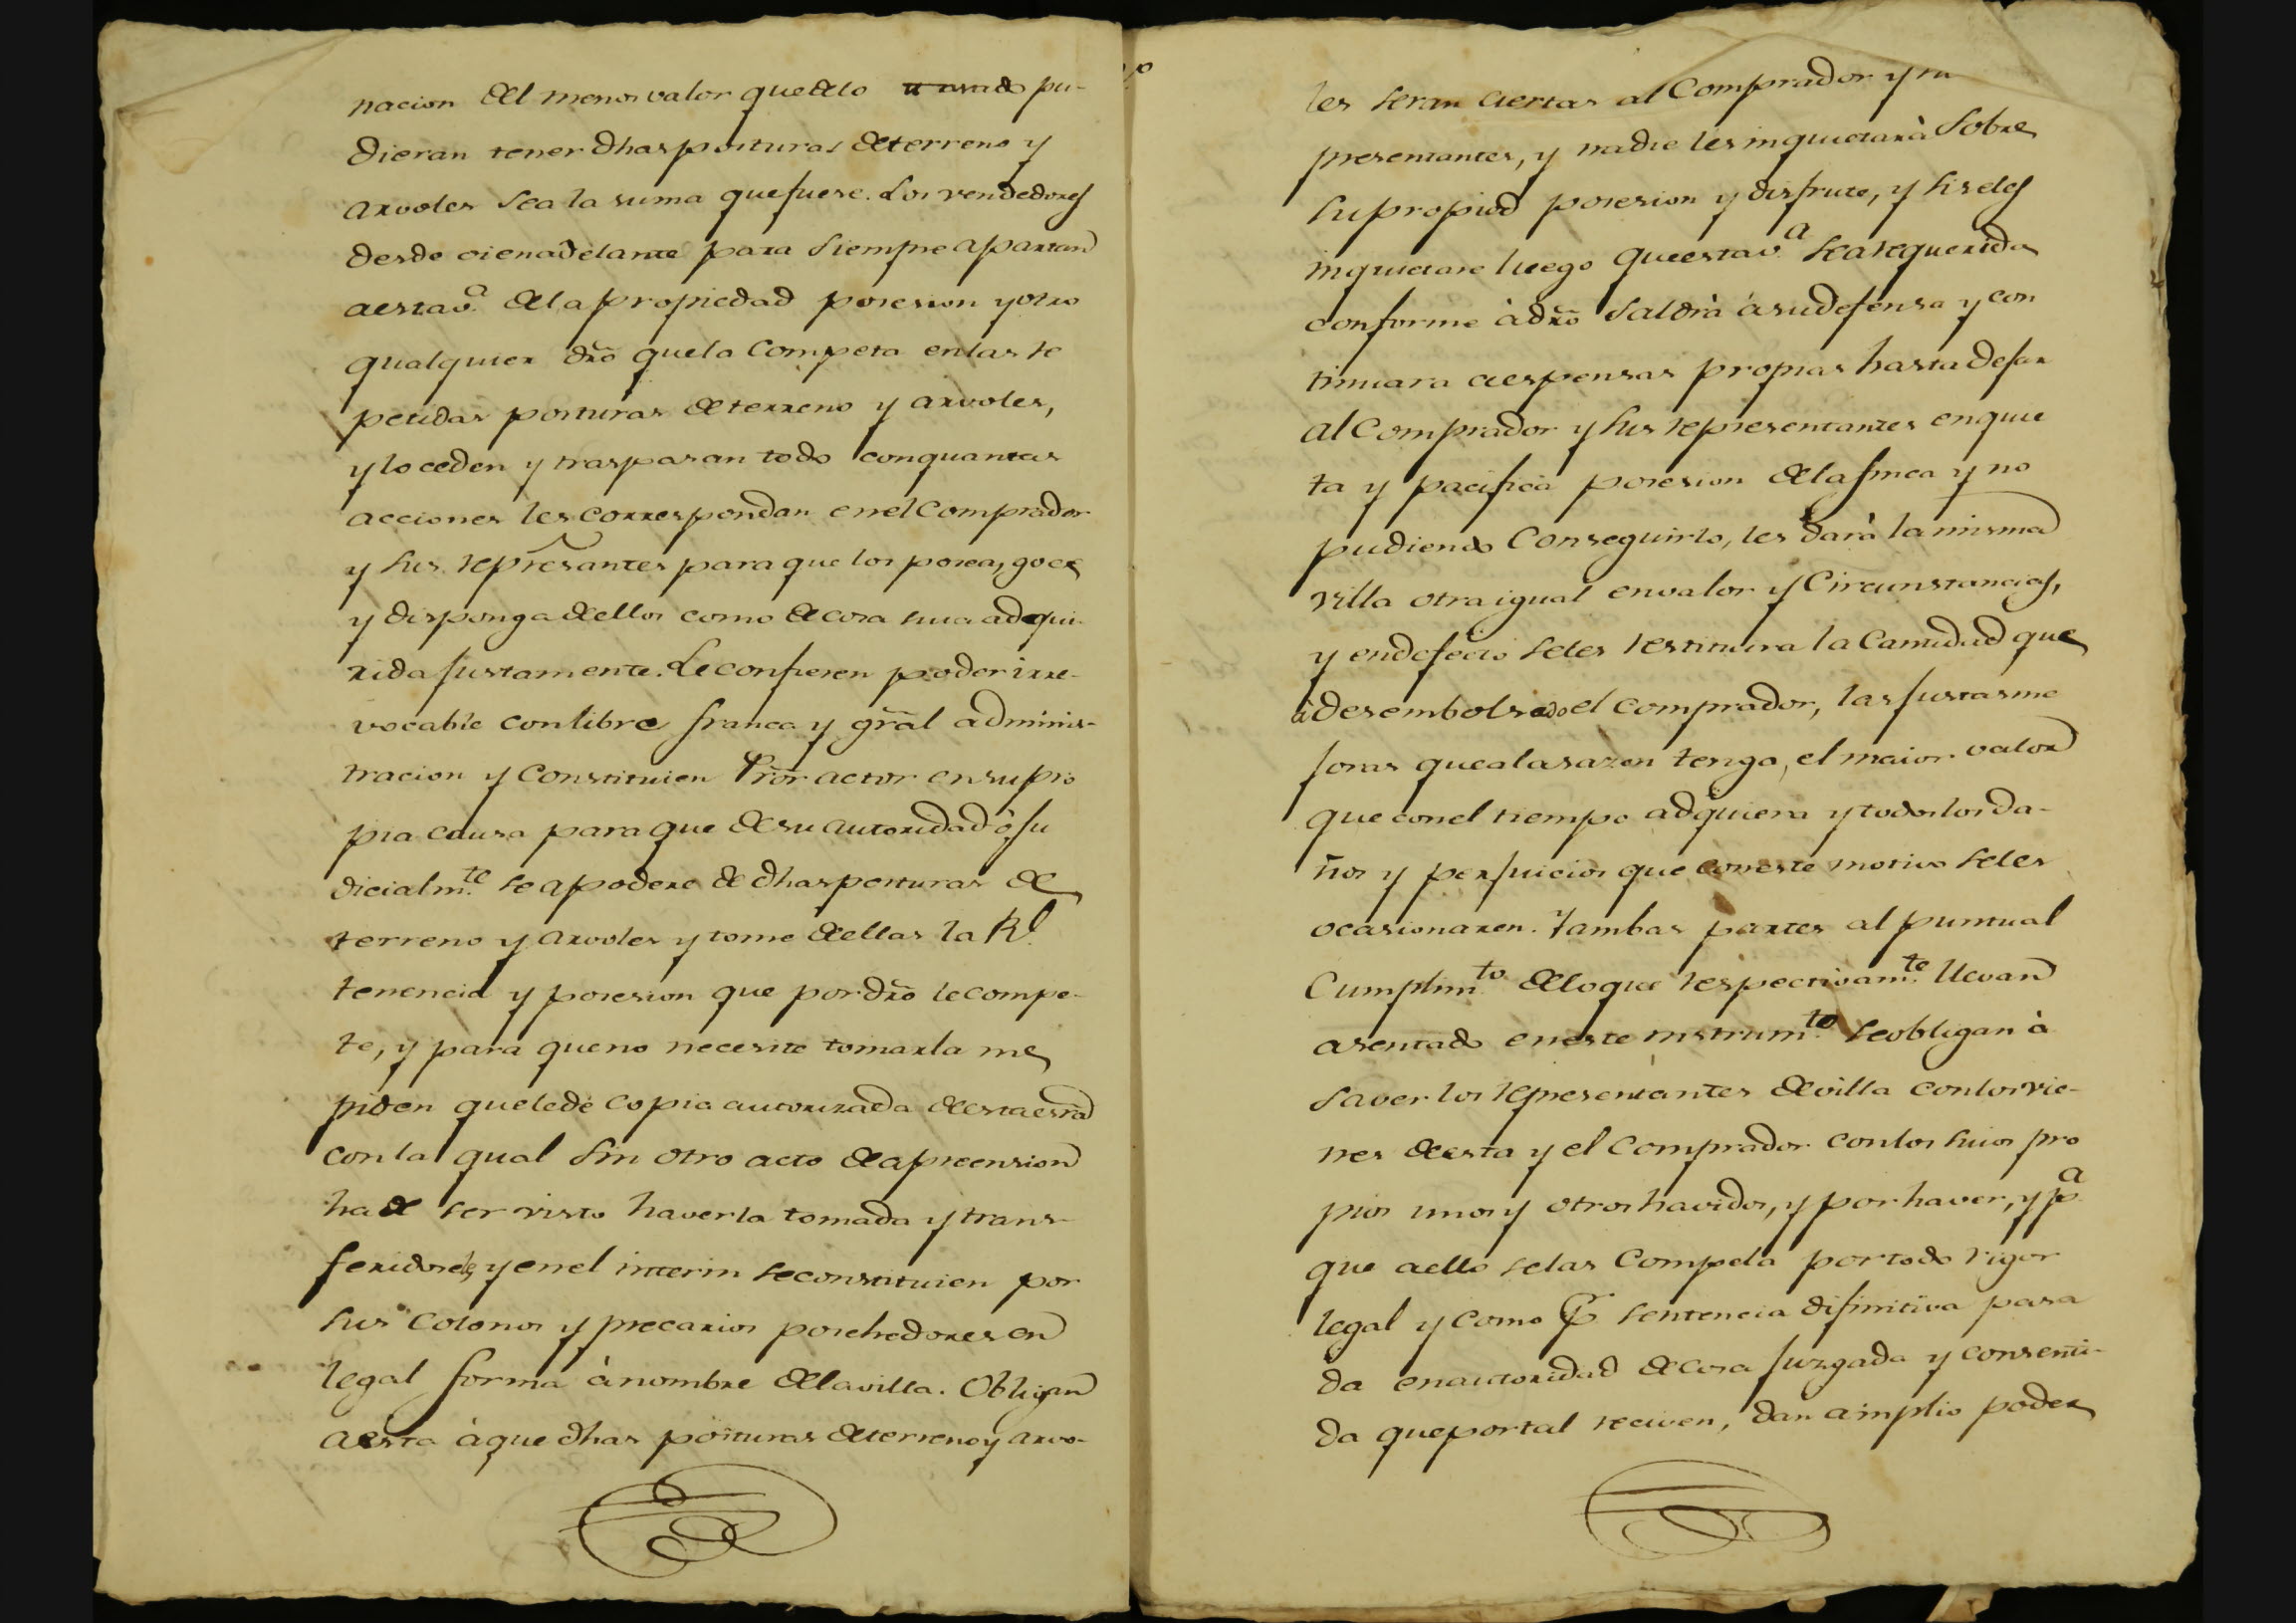 nacion del menor valor que de lo tasado pu-
dieran tener dhas posturas de terreno y
arvoles sea la suma que fuese. Los vendedores
desde oi en adelante para siempre apartan
a esta v.a de la propiedad posesion y otro
qualquier dro que la competa en las re
petidas posturas de terreno y arvoles,
y lo ceden y trasparan todo con quantas
acciones les correspondan en el comprador
y sus represantes para que los posea, goce
y disponga de ellos como de cosa sua adqui-
rida justamente. Le confieren poder irre-
vocable con libre franca y gral adminis-
tracion y constituien Pror actor en su pro
pia causa para que de su autoridad ó ju
dicialm.te se apodere de dhas posturas de
terreno y arvoles y tome de ellas la Rl.
tenencia y posesion que por dro le compe-
te, y para que no necesite tomarla me
piden que le dé copia autorizada de esta esra
con la qual sin otro acto de apreension
ha de ser visto haverla tomada y trans-
feridosele, y en el interin se constituien por
sus colonos y precarios posehedores en
legal forma à nombre de la villa. Obligan
a esta à que dhas posturas de terreno y arvo-
les seran ciertas al Comprador y su
presentantes, y nadie les inquietarà sobre
su propied posesion y disfrute, y si se les
inquietare luego que esta v.a sea requerida
conforme à dro saldrà à su defensa y con
tinuara a espensas propias hasta dejar
al Comprador y sus representantes en quie
ta y pacifica posesion de la finca y no
pudiendo conseguirlo, les darà la misma
villa otra igual en valor y circunstancias,
y en defecto se les restituira la cantidad que
à desembolsado el comprador, las justas me
joras que a la sazon tenga, el maior valor
que con el tiempo adquiera y todos los da-
ños y perjuicios que con este motivo se les
ocasionaren. Y ambas partes al puntual
Cumplim.to de lo que respectivam.te llevan
asentado en este instrum.to se obligan à
saver los representantes de villa con los vie-
nes de esta y el comprador con los suios pro
pios unos y otros havidos, y por haver, y p.a
que a ello se las compela por todo rigor
legal y como Por sentencia difinitiva pasa
da en autoridad de cosa juzgada y consenti-
da que por tal reciven, dan amplio poder